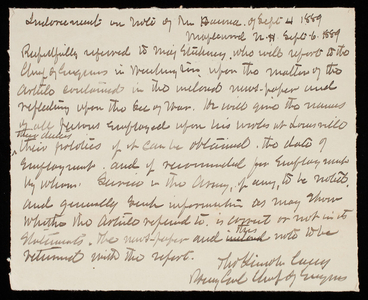 Indorsement on note of Mr Hanna of Sept 4 1889
Maplewood N.H. Sept. 6. 1889
Respectfully referred to Maj Stickney, who will report to the
Chief of Engineers in Washington, upon the matter of the
Article contained in the inclosed news-paper and
reflecting upon the Sec of War. He will give the names
of all persons employed upon his works at Louisville
their duties
their politics if it can be obtained. the date of
Employment. and if recommended for Employment
by whom. Service in the Army, if any, to be noted,
and generally such information as may show
whether the Article referred to is correct or not in its
Statements. The news-paper and this note to be
returned with the report.
Thos Lincoln Casey
Brig Genl Chief of Engineers